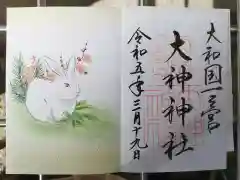 大和国一宮
大神神社
令和五年三月十九日